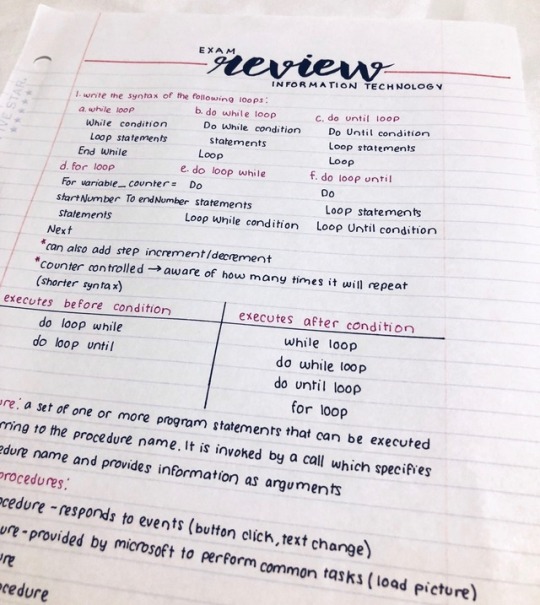 EXAM
review
INFORMATION TECHNOLOGY
FIVE STAR.
1. write the syntax of the following loops:
a. while loop
While condition
Loop statements
End While
b. do while loop
Do While condition
statements
Loop
c. do until loop
Do Until condition
Loop statements
Loop
d. for loop
For variable_counter =
startNumber To endNumber
statements
Next
e. do loop while
Do
statements
Loop While condition
f. do loop until
Do
Loop statements
Loop Until condition
*can also add step increment/decrement
*counter controlled → aware of how many times it will repeat
(shorter syntax)
executes before condition
do loop while
do loop until
executes after condition
while loop
do while loop
do until loop
for loop
ure: a set of one or more program statements that can be executed
rring to the procedure name. It is invoked by a call which specifies
edure name and provides information as arguments
procedures:
ocedure - responds to events (button click, text change)
ure - provided by microsoft to perform common tasks (load picture)
ure
ocedure